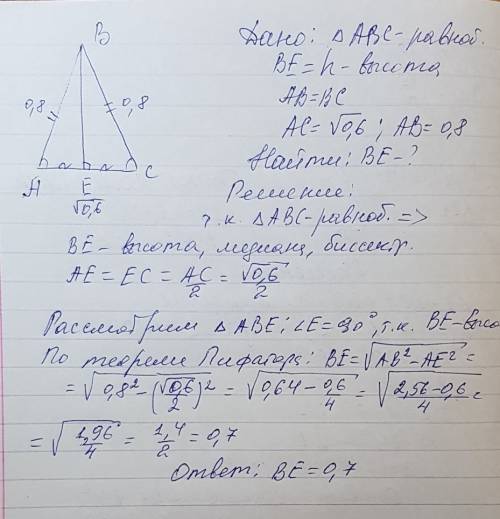 Дано: △ABC-равноб.
BE=h-высота
AB=BC
AC=√0,6 ; AB=0,8
Найти: BE-?
Решение:
B
0,8
0,8
A
E
C
√0,6
т.к. △ABC-равноб. =>
BE- высота, медиана, биссектр.
AE=EC=AC/2=√0,6/2
Рассмотрим △ABE; ∠E=90°, т.к. BE-высо
По теореме Пифагора: BE=√AB²-AE²=
=√0,8²-(√0,6/2)²=√0,64-0,6/4=√2,56-0,6/4=
=√1,96/4=1,4/2=0,7
Ответ: BE=0,7